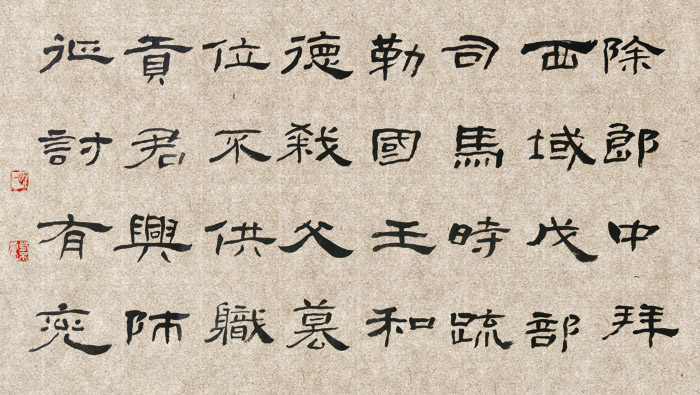 除郎中拜
西域戊部
司馬時疏
勒國王和
德弒父篡
位不供職
貢君興師
征討有兗